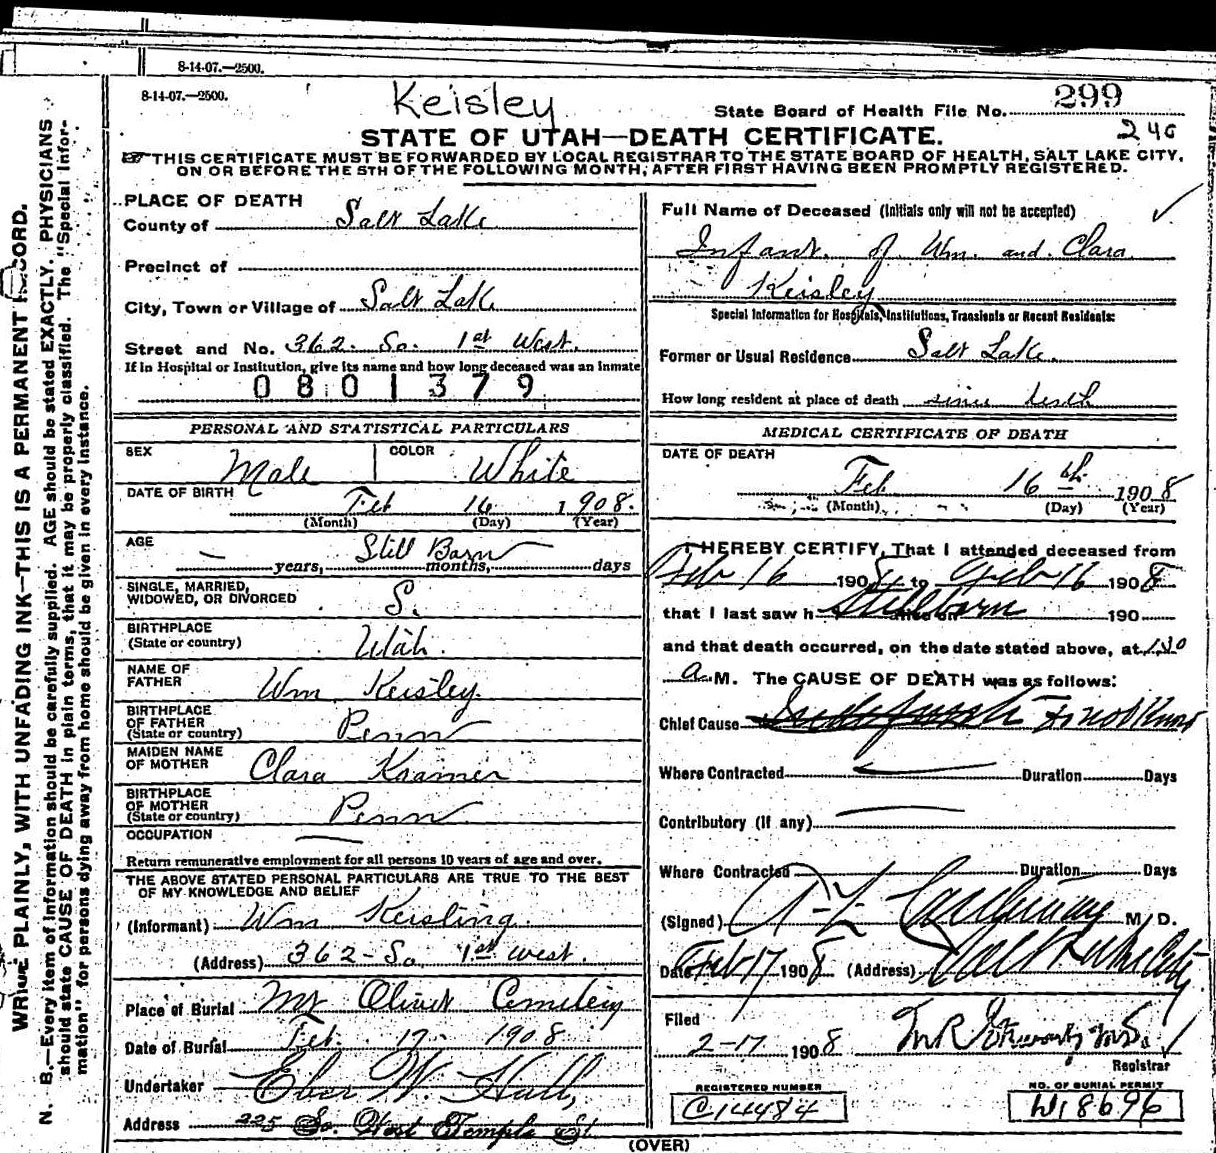 8-14-07.—2500.
8-14-07.—2500.
Keisley
State Board of Health File No. 299
240
STATE OF UTAH—DEATH CERTIFICATE.
THIS CERTIFICATE MUST BE FORWARDED BY LOCAL REGISTRAR TO THE STATE BOARD OF HEALTH, SALT LAKE CITY,
ON OR BEFORE THE 5TH OF THE FOLLOWING MONTH, AFTER FIRST HAVING BEEN PROMPTLY REGISTERED.
WRITE PLAINLY, WITH UNFADING INK—THIS IS A PERMANENT RECORD.
N. B.—Every item of information should be carefully supplied. AGE should be stated EXACTLY. PHYSICIANS
should state CAUSE OF DEATH in plain terms, that it may be properly classified. The "Special Infor-
mation" for persons dying away from home should be given in every instance.
PLACE OF DEATH
County of Salt Lake
Precinct of
City, Town or Village of Salt Lake
Street and No. 362. So. 1st West.
If in Hospital or Institution, give its name and how long deceased was an inmate
0801379
PERSONAL AND STATISTICAL PARTICULARS
SEX Male COLOR White
DATE OF BIRTH Feb 16 1908.
(Month) (Day) (Year)
AGE Still Born
years, months, days
SINGLE, MARRIED,
WIDOWED, OR DIVORCED S.
BIRTHPLACE
(State or country) Utah.
NAME OF
FATHER Wm Keisley.
BIRTHPLACE
OF FATHER
(State or country) Penn
MAIDEN NAME
OF MOTHER Clara Kramer
BIRTHPLACE
OF MOTHER
(State or country) Penn
OCCUPATION
Return remunerative employment for all persons 10 years of age and over.
THE ABOVE STATED PERSONAL PARTICULARS ARE TRUE TO THE BEST
OF MY KNOWLEDGE AND BELIEF
(Informant) Wm Keisling.
(Address) 362-So. 1st west.
Place of Burial Mt Olivet Cemetery
Date of Burial Feb. 17. 1908.
Undertaker Eber W. Hall,
Address 225 So. West Temple St.
Full Name of Deceased (Initials only will not be accepted)
Infant. of Wm. and. Clara.
Keisley
Special Information for Hospitals, Institutions, Transients or Recent Residents:
Former or Usual Residence Salt Lake.
How long resident at place of death since
MEDICAL CERTIFICATE OF DEATH
DATE OF DEATH
Feb 16th 1908
(Month) (Day) (Year)
I HEREBY CERTIFY, That I attended deceased from
Feb 16 1908, to Feb 16 1908
that I last saw h Stillborn alive on 190
and that death occurred, on the date stated above, at 1.30
a. M. The CAUSE OF DEATH was as follows:
Chief Cause
Where Contracted Duration Days
Contributory (if any)
Where Contracted Duration Days
(Signed) M. D.
Date Feb 17 1908 (Address) Salt Lake City.
Filed
2-17 1908
Registrar
REGISTERED NUMBER
C14484
NO. OF BURIAL PERMIT
W18696
(OVER)